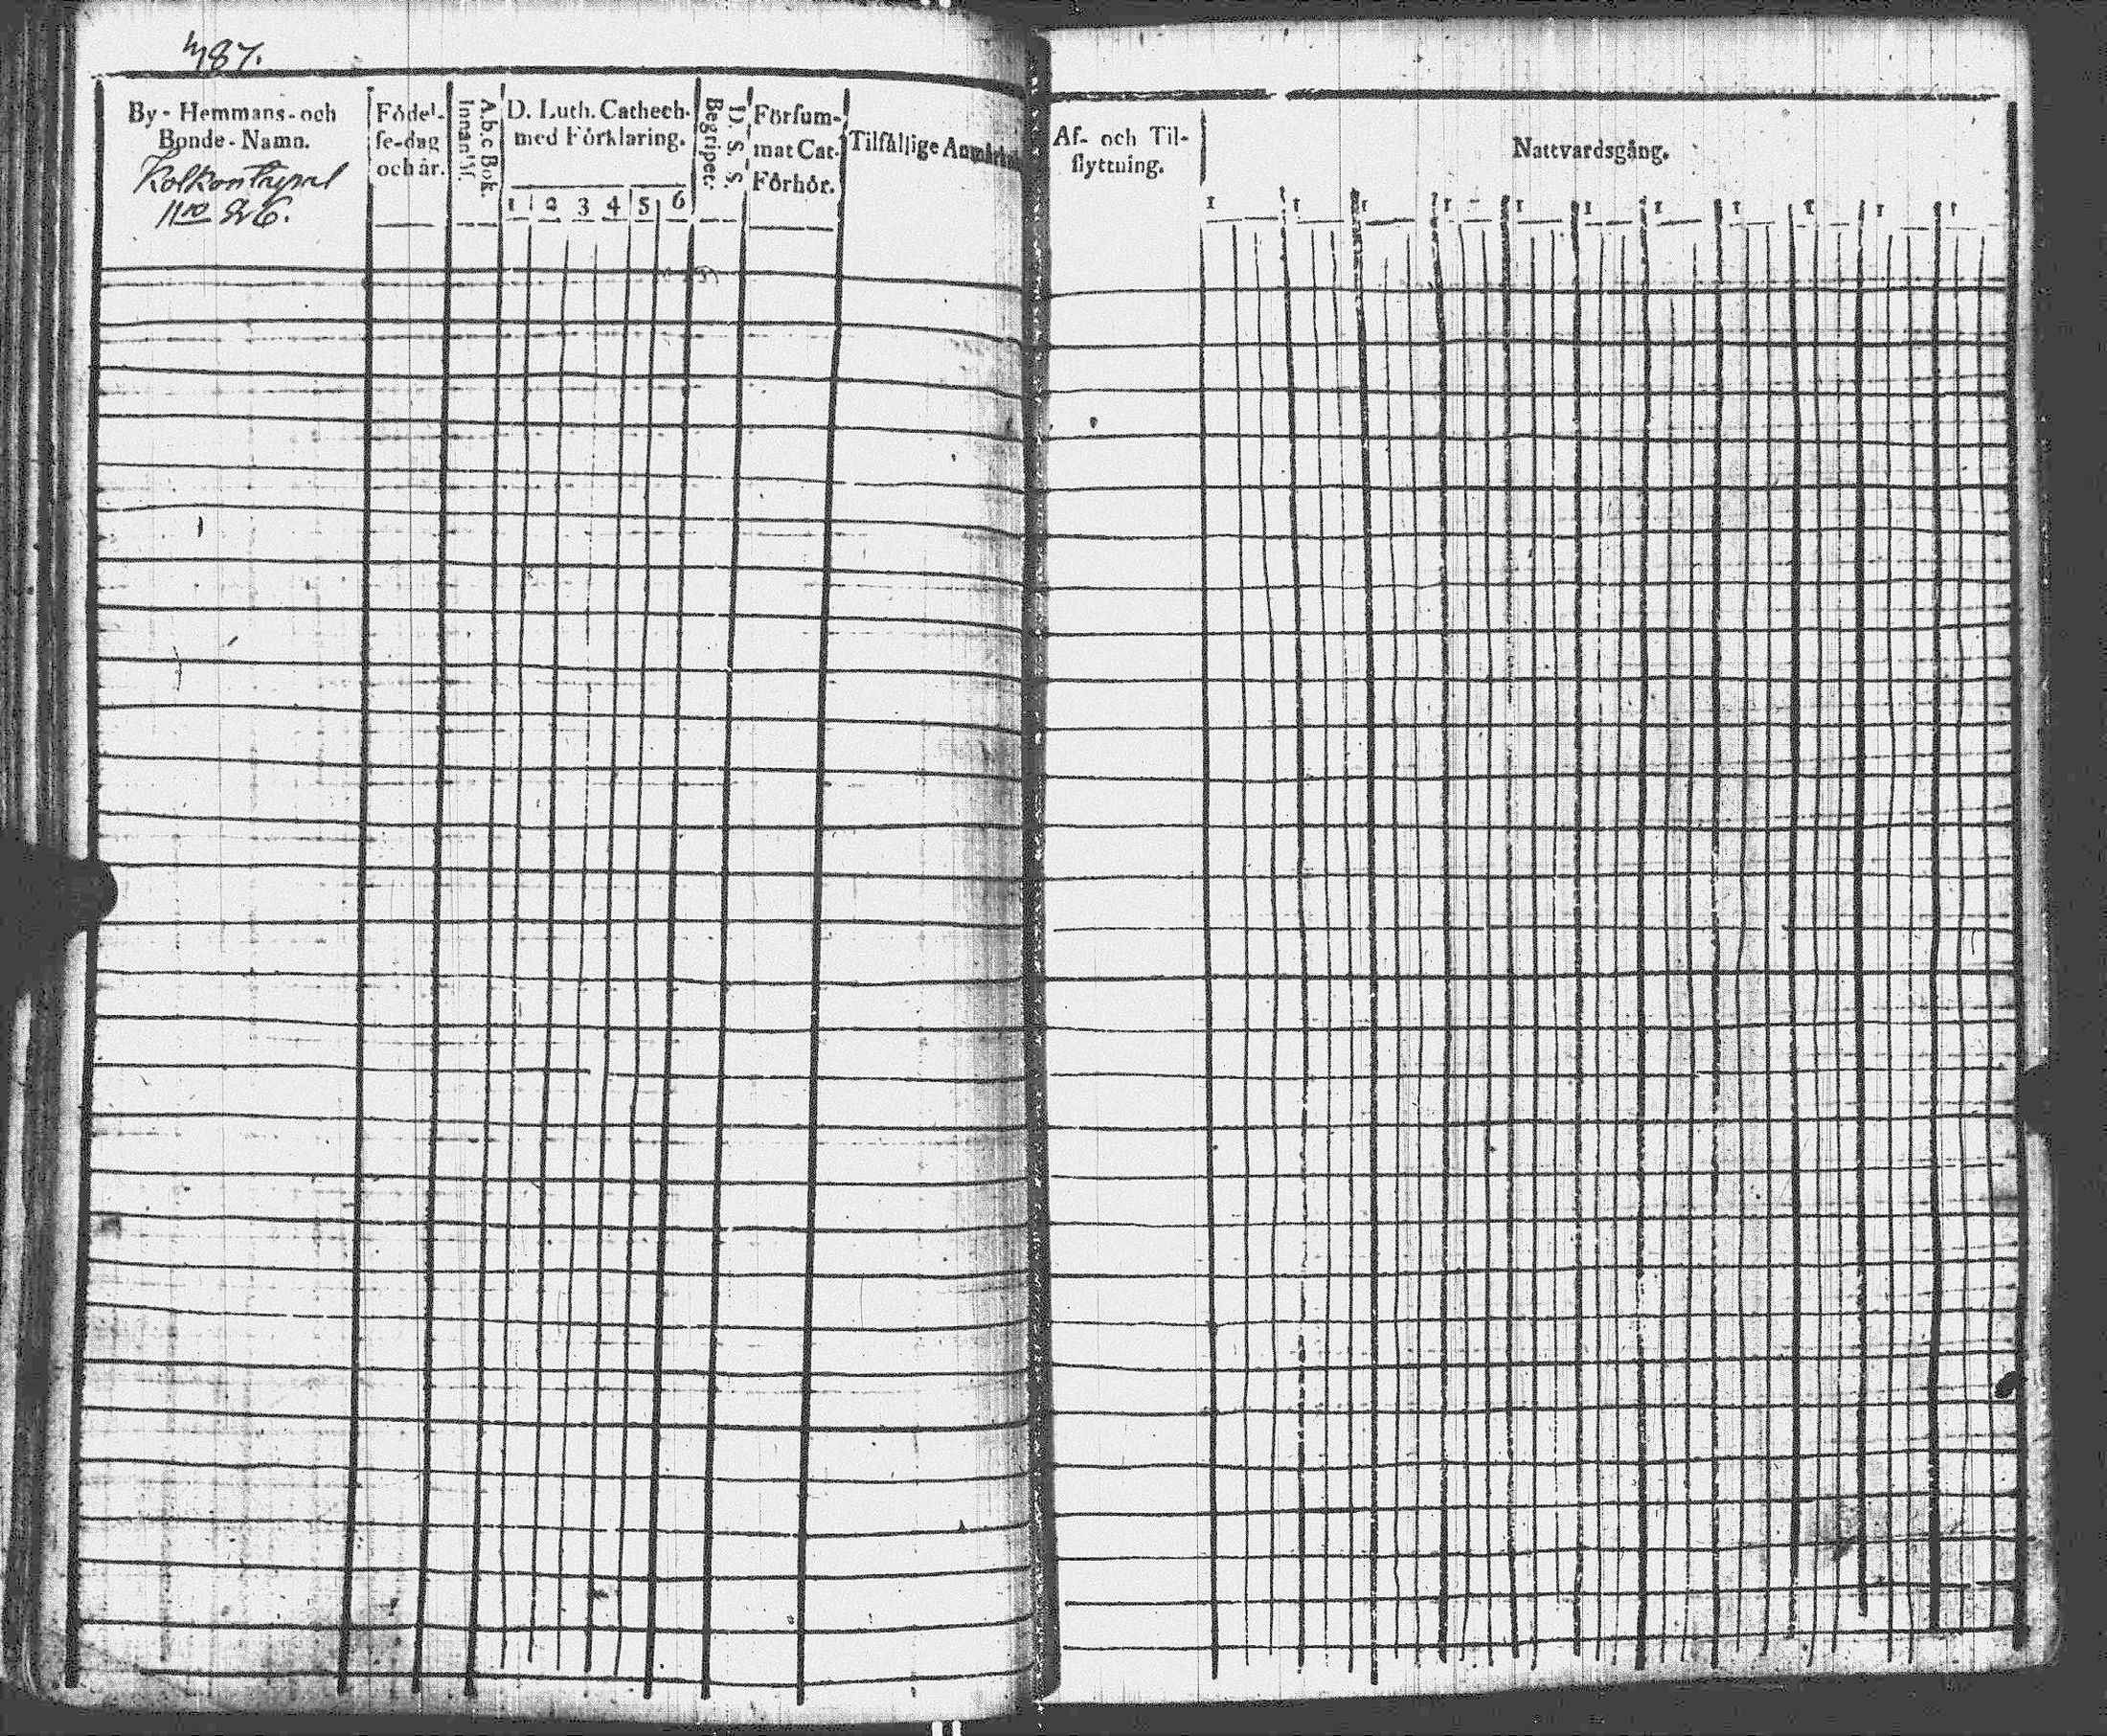 487.
By - Hemmans - och
Bonde - Namn.
N:ro 26.
Födel-
se-dag
och år.
A.b.c Bok.
Innant:l.
D. Luth. Cathech.
med Förklaring.
1 2 3 4 5 6
D. S. S.
Begriper.
Försum-
mat Cat.
Förhör.
Tilfällige Anmärkn
Af- och Til-
flyttning.
Nattvardsgång.
1 1 1 1 1 1 1 1 1 1 1